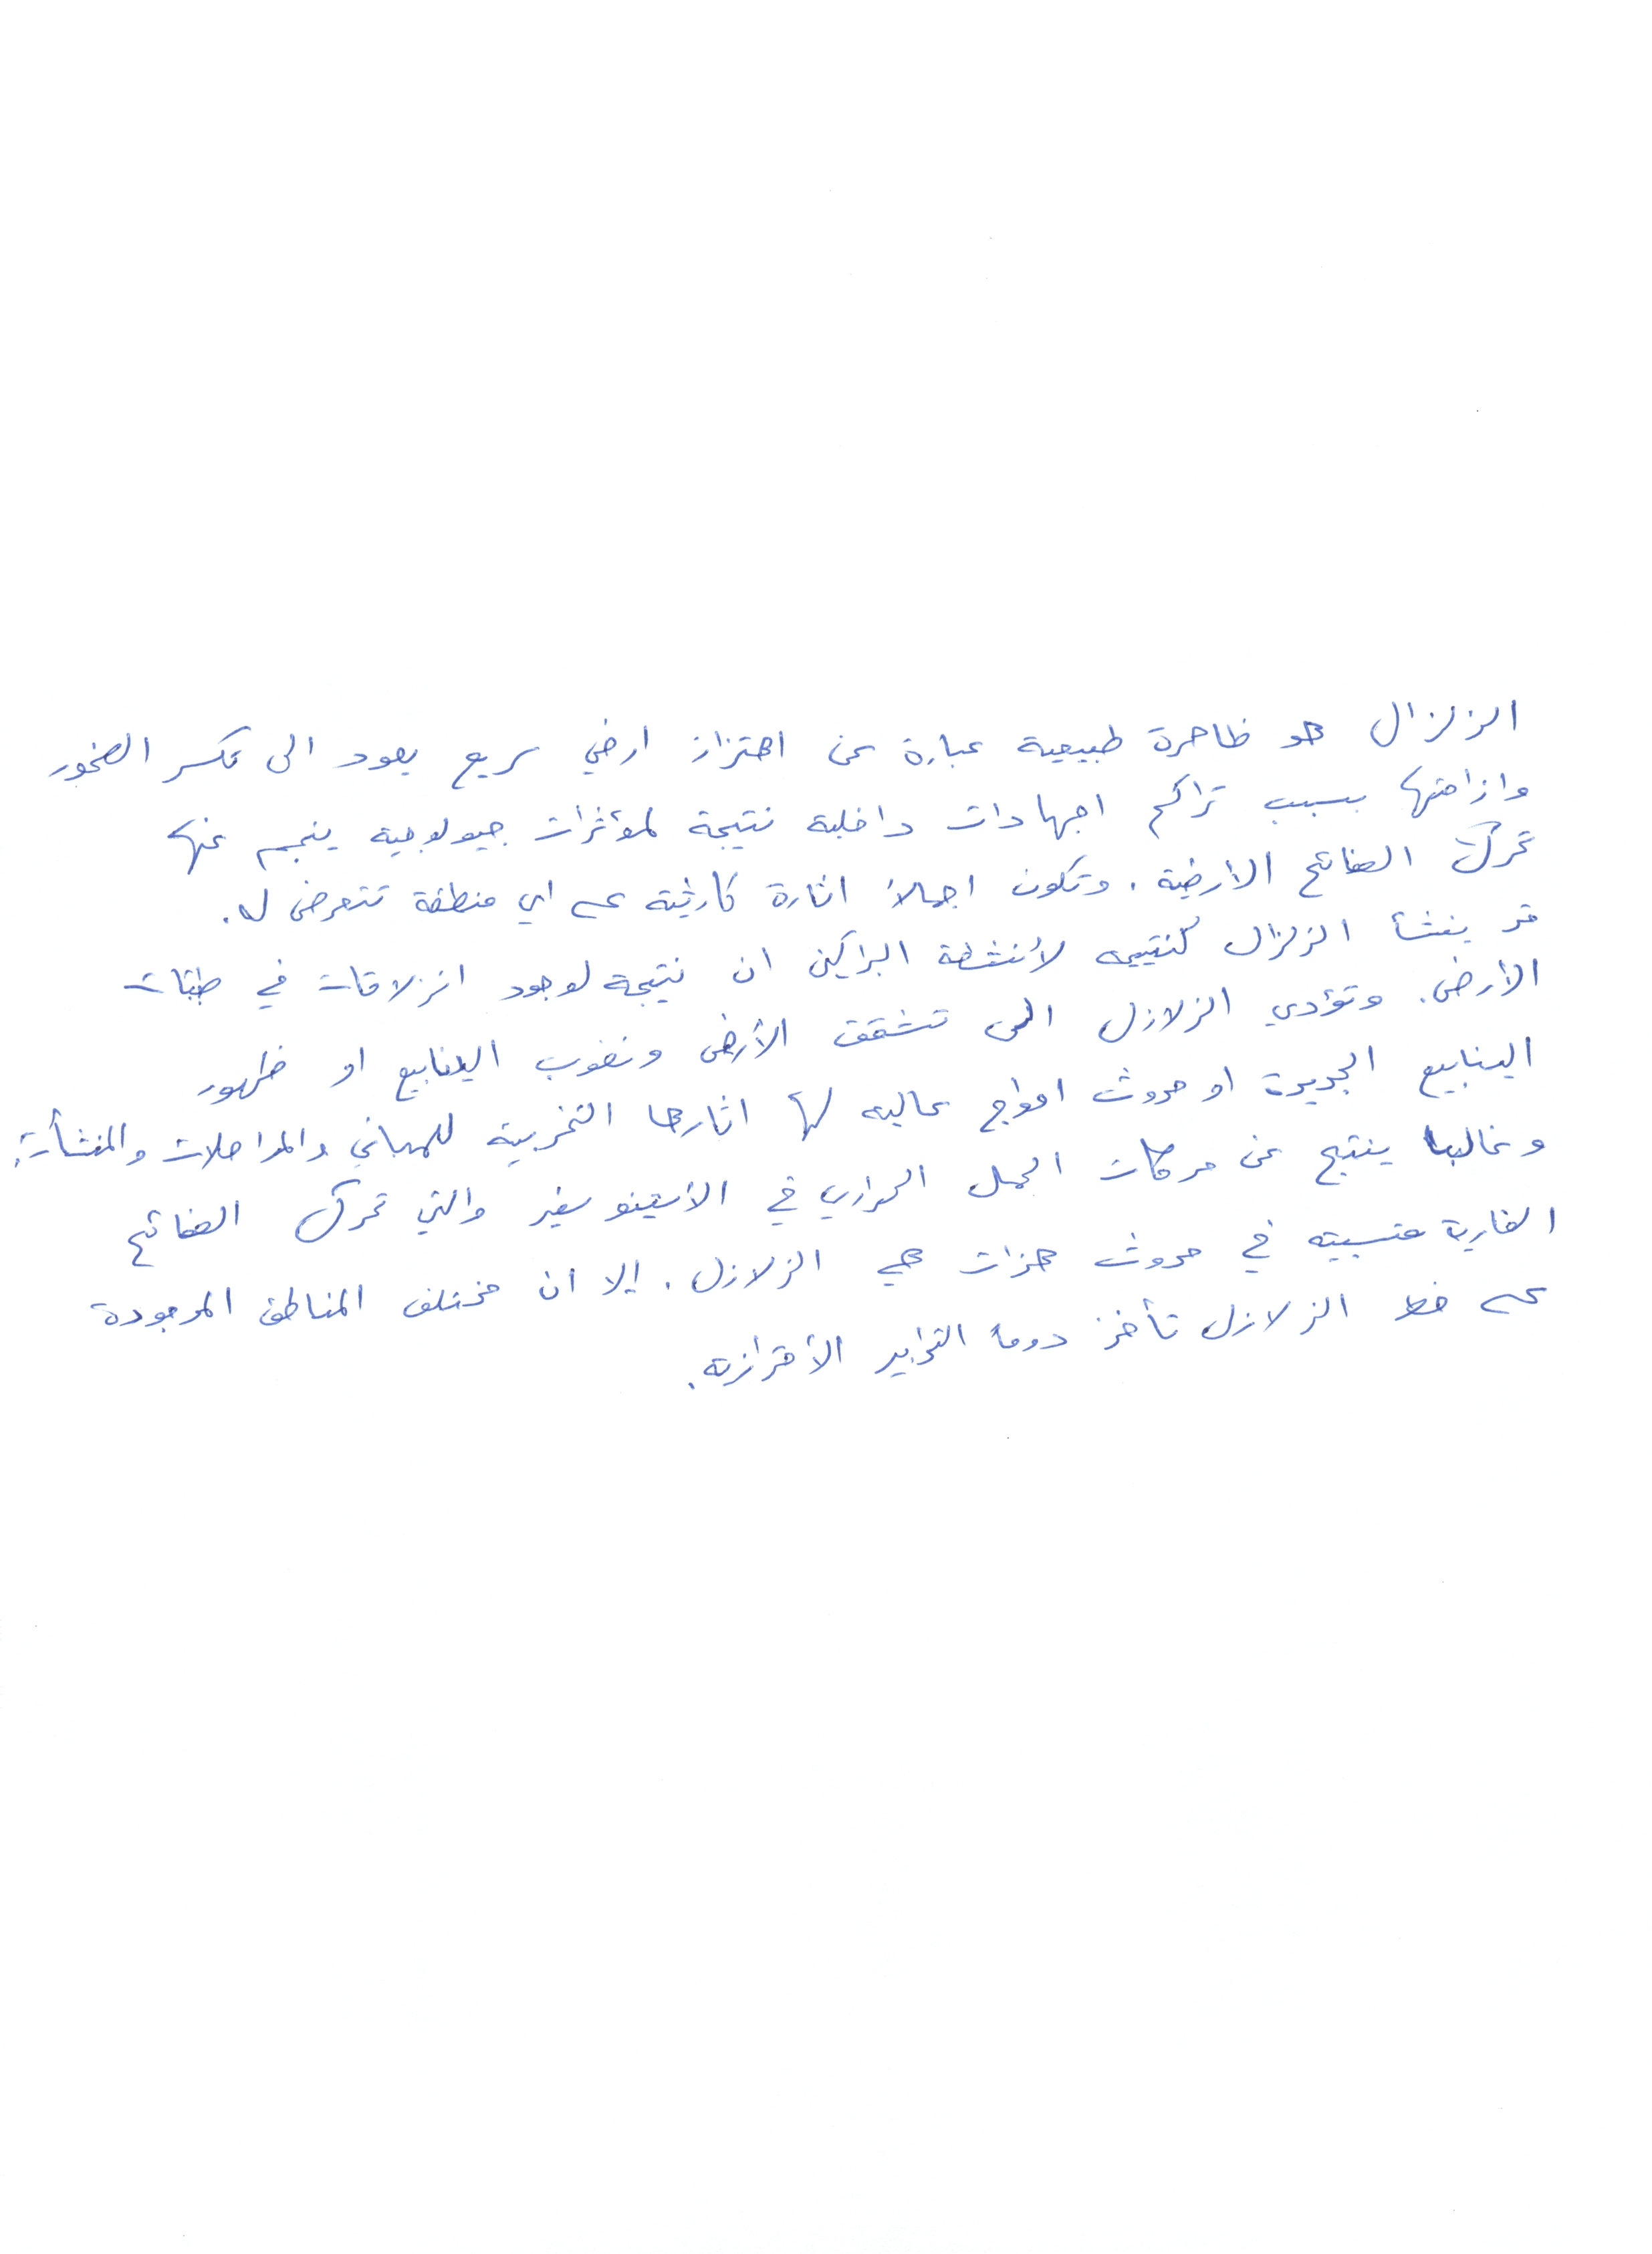 الزلزال هو ظاهرة طبيعية عبارة عن اهتزاز ارضي سريع يعود الى تكسر الصخور
وازاحتها بسبب تراكم اجهادات داخلية نتيجة لمؤثرات جيولوجية ينجم عنها
تحرك الصفائح الارضية. وتكون اجمالا اثارة كارثية على اي منطقة تتعرض له.
قد ينشأ الزلزال كنتيجه لأنشطة البراكين ان نتيجة لوجود انزلاقات في طبقات
الأرض. وتؤدي الزلازل الى تشقق الأرض ونضوب الينابيع او ظهور
الينابيع الجديدة او حدوث امواج عاليه لها اثارها التخريبية للمباني والمواصلات والمنشأت.
وغالبا ينتج عن حركات الحمل الحراري في الأستينوسفير والتي تحرك الصفائح
القارية متسببته في حدوث هزات هي الزلازل. إلا ان مختلف المناطق الموجودة
على خط الزلازل تأخذ دوما التدابير الأحترازية.